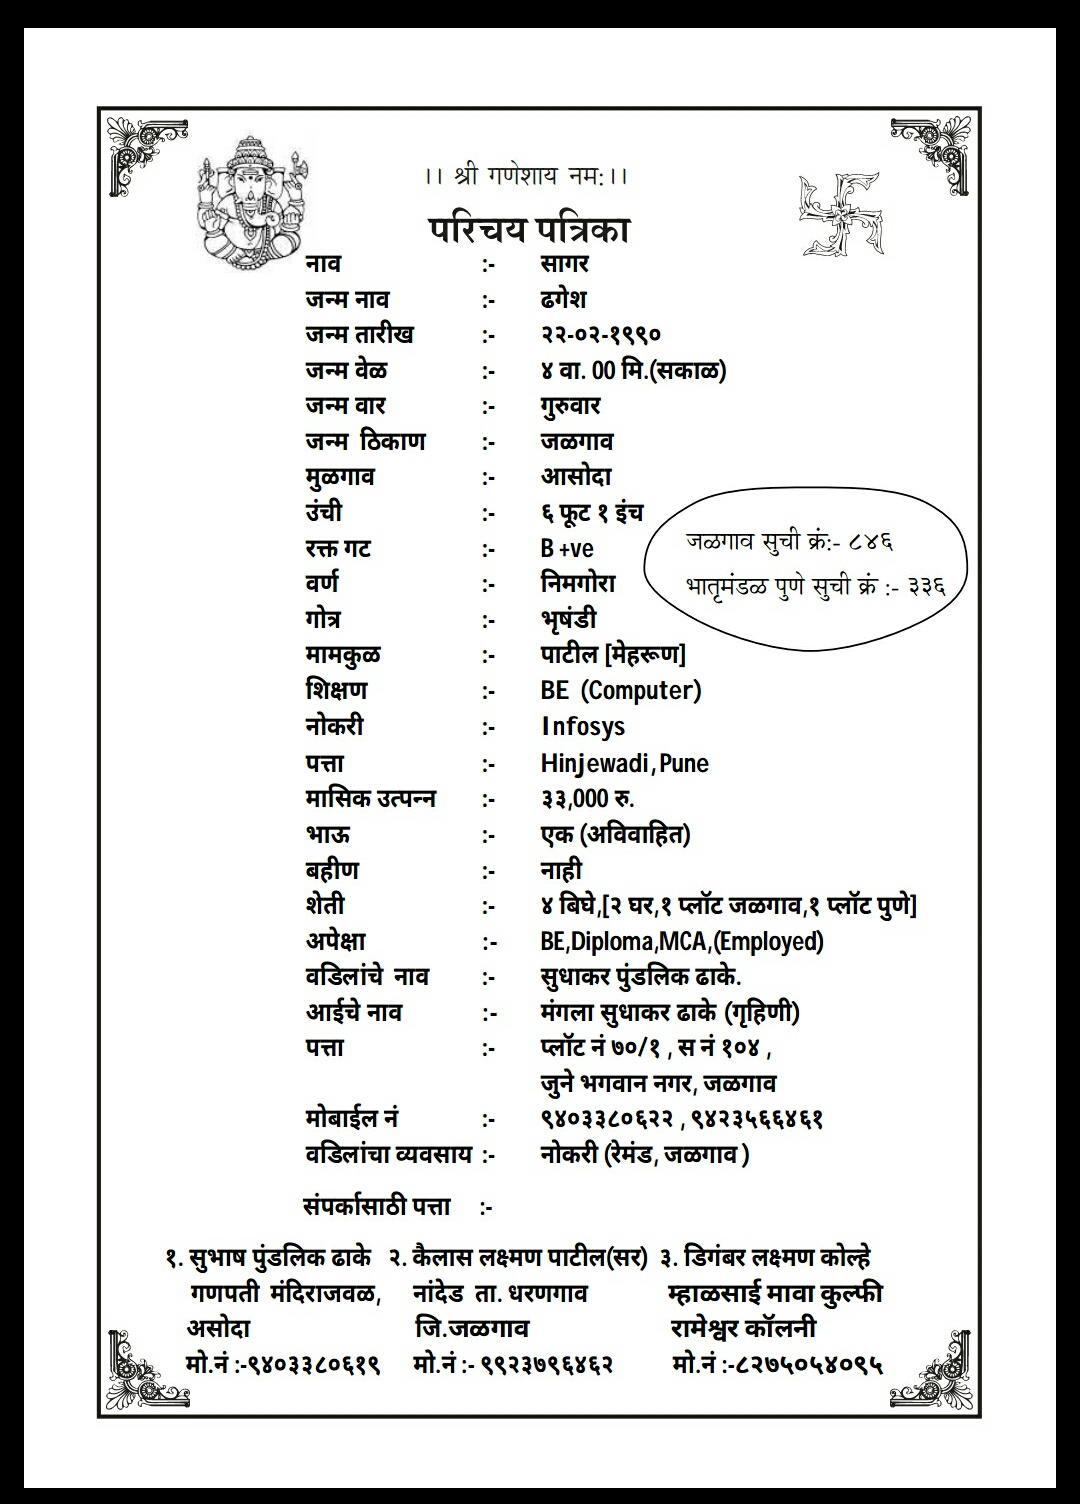 ।। श्री गणेशाय नम:।।
परिचय पत्रिका
नाव :- सागर
जन्म नाव :- ढगेश
जन्म तारीख :- २२-०२-१९९०
जन्म वेळ :- ४ वा. 00 मि.(सकाळ)
जन्म वार :- गुरुवार
जन्म ठिकाण :- जळगाव
मुळगाव :- आसोदा
उंची :- ६ फूट १ इंच
जळगाव सुची क्रं:- ८४६
रक्त गट :- B +ve
भातृमंडळ पुणे सुची क्रं :- ३३६
वर्ण :- निमगोरा
गोत्र :- भृषंडी
मामकुळ :- पाटील [मेहरूण]
शिक्षण :- BE (Computer)
नोकरी :- Infosys
पत्ता :- Hinjewadi,Pune
मासिक उत्पन्न :- ३३,000 रु.
भाऊ :- एक (अविवाहित)
बहीण :- नाही
शेती :- ४ बिघे,[२ घर,१ प्लॉट जळगाव,१ प्लॉट पुणे]
अपेक्षा :- BE,Diploma,MCA,(Employed)
वडिलांचे नाव :- सुधाकर पुंडलिक ढाके.
आईचे नाव :- मंगला सुधाकर ढाके (गृहिणी)
पत्ता :- प्लॉट नं ७०/१ , स नं १०४ ,
जुने भगवान नगर, जळगाव
मोबाईल नं :- ९४०३३८०६२२ , ९४२३५६६४६१
वडिलांचा व्यवसाय :- नोकरी (रेमंड, जळगाव )
संपर्कासाठी पत्ता :-
१. सुभाष पुंडलिक ढाके २. कैलास लक्ष्मण पाटील(सर) ३. डिगंबर लक्ष्मण कोल्हे
गणपती मंदिराजवळ, नांदेड ता. धरणगाव म्हाळसाई मावा कुल्फी
असोदा जि.जळगाव रामेश्वर कॉलनी
मो.नं :-९४०३३८०६१९ मो.नं :- ९९२३७९६४६२ मो.नं :-८२७५०५४०९५